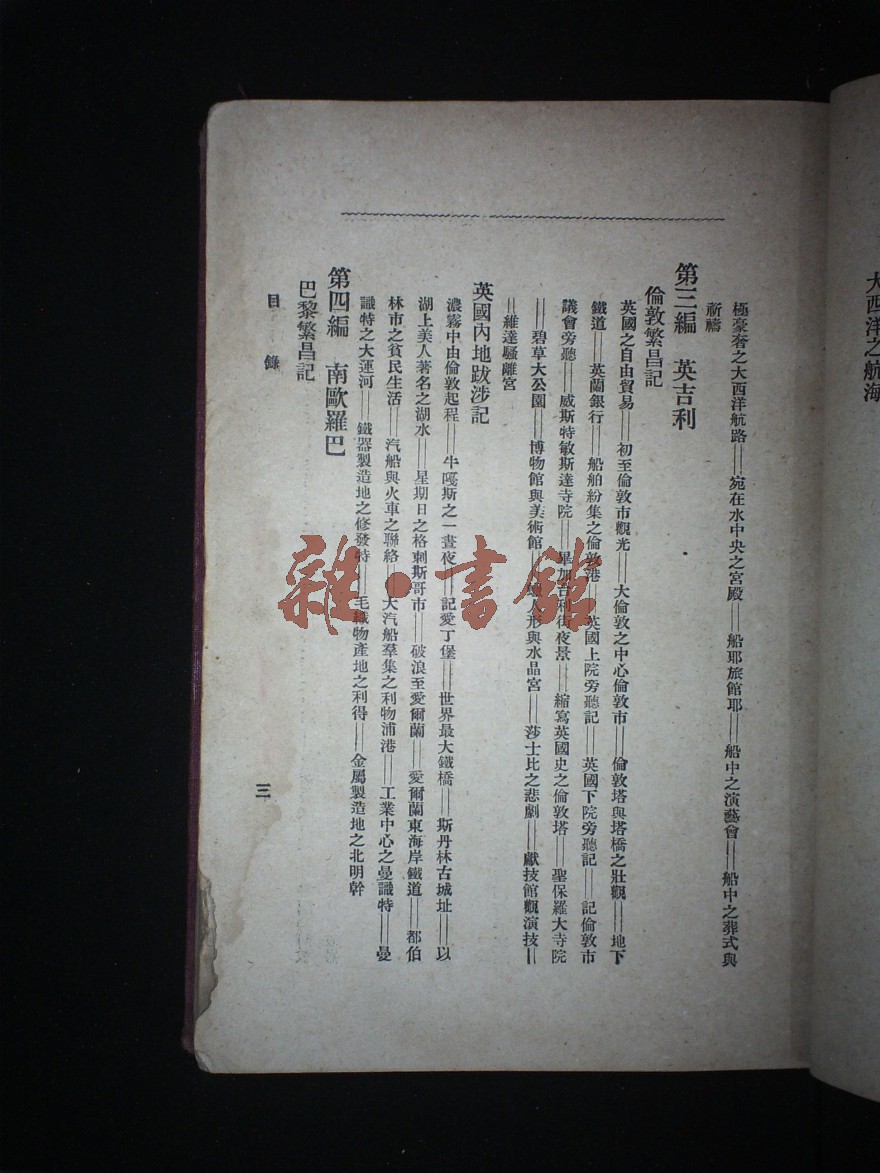 大西洋之航海
極豪奢之大西洋航路——宛在水中央之宮殿——船耶旅館耶——船中之演藝會——船中之葬式與
祈禱
第三編　英吉利
倫敦繁昌記
英國之自由貿易——初至倫敦市觀光——大倫敦之中心倫敦市——倫敦塔與塔橋之壯觀——地下
鐵道——英蘭銀行——船舶紛集之倫敦港——英國上院旁聽記——英國下院旁聽記——記倫敦市
議會旁聽——威斯特敏斯達寺院——畢加吉利街夜景——縮寫英國史之倫敦塔——聖保羅大寺院
——碧草大公園——博物館與美術館——蠟人形與水晶宮——莎士比之悲劇——獻技館觀演技——
——維達騷離宮
英國內地跋涉記
濃霧中由倫敦起程——牛嘎斯之一晝夜——記愛丁堡——世界最大鐵橋——斯丹林古城址——以
湖上美人著名之湖水——星期日之格刺斯哥市——破浪至愛爾蘭——愛爾蘭東海岸鐵道——都伯
林市之貧民生活——汽船與火車之聯絡——大汽船羣集之利物浦港——工業中心之曼識特——曼
識特之大運河——鐵器製造地之修發特——毛織物產地之利得——金屬製造地之北明幹
第四編　南歐羅巴
巴黎繁昌記
目錄
三
雜·書館